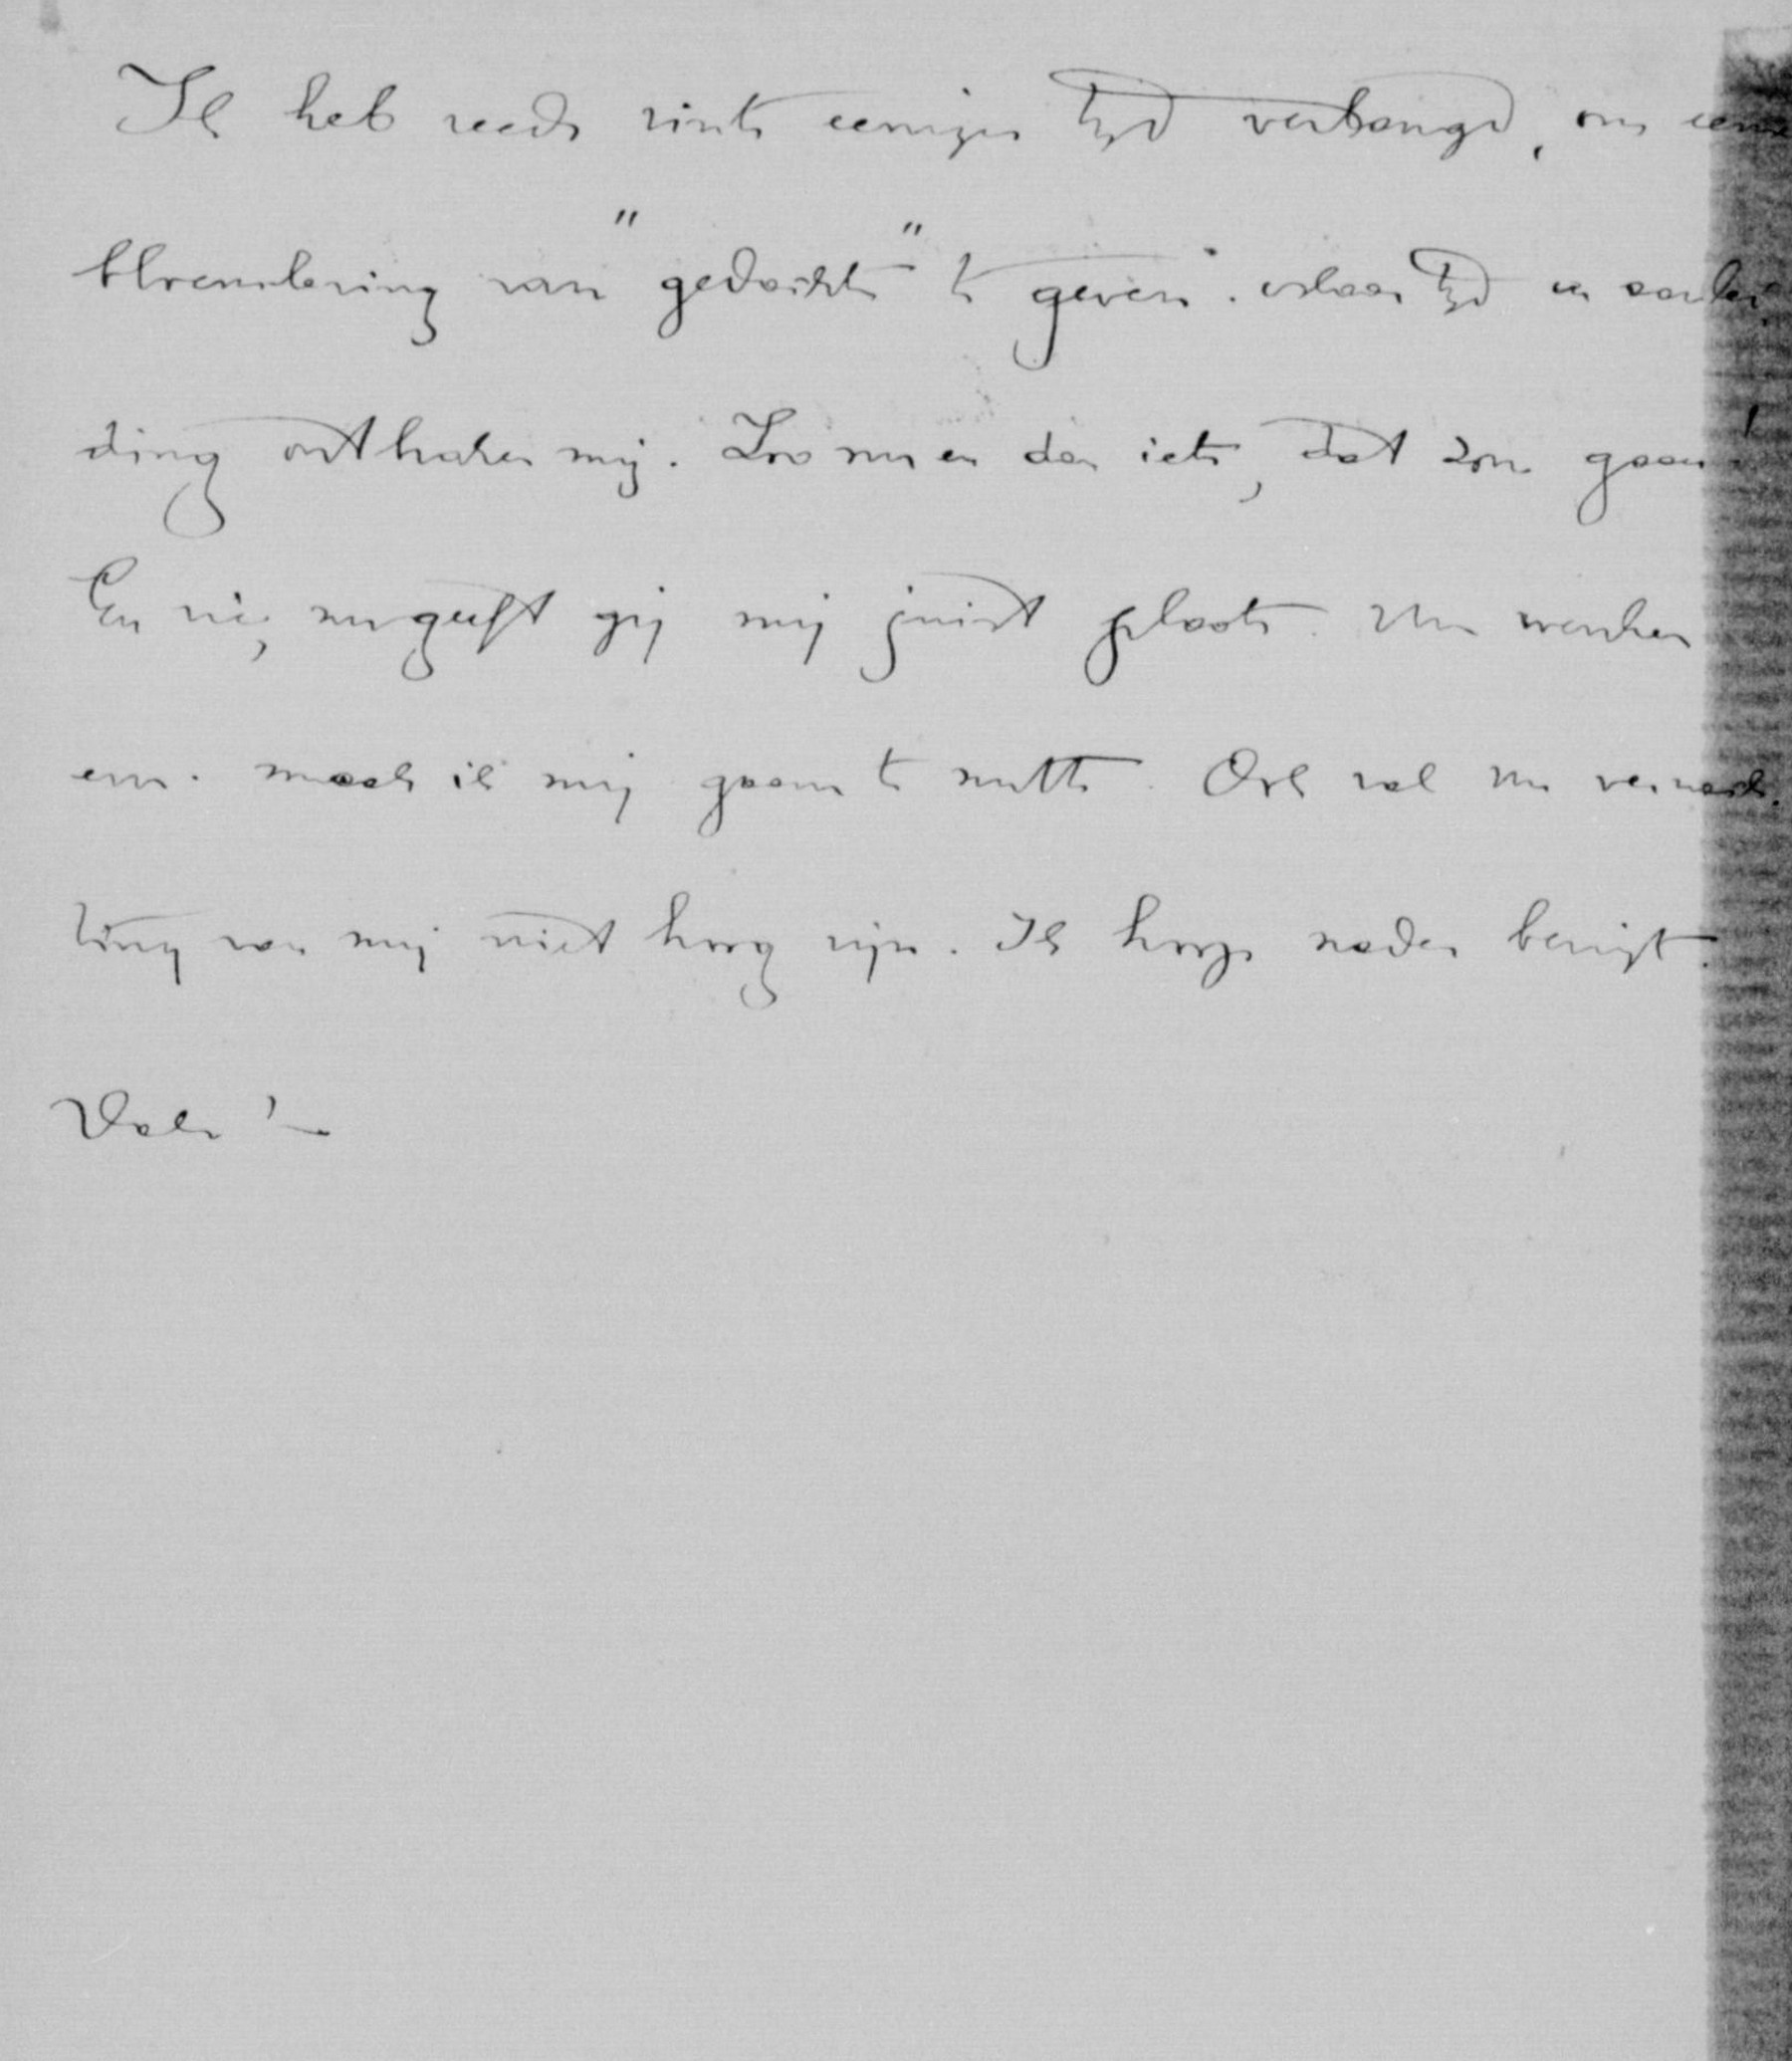 Ik heb reeds sints eenigen tijd verlangd, om eene
bloemlezing van "gedachten" te geven. maar tijd en aanlei-
ding ontbraken mij. Zoo nu en dan iets, dat zou gaan!
En zie, nu geeft gij mij juist plaats. Uw wenken
enz. maak ik mij gaarne te nutte. Ook zal uw verwach-
ting van mij niet hoog zijn. Ik hoop nader berigt.
Vale!